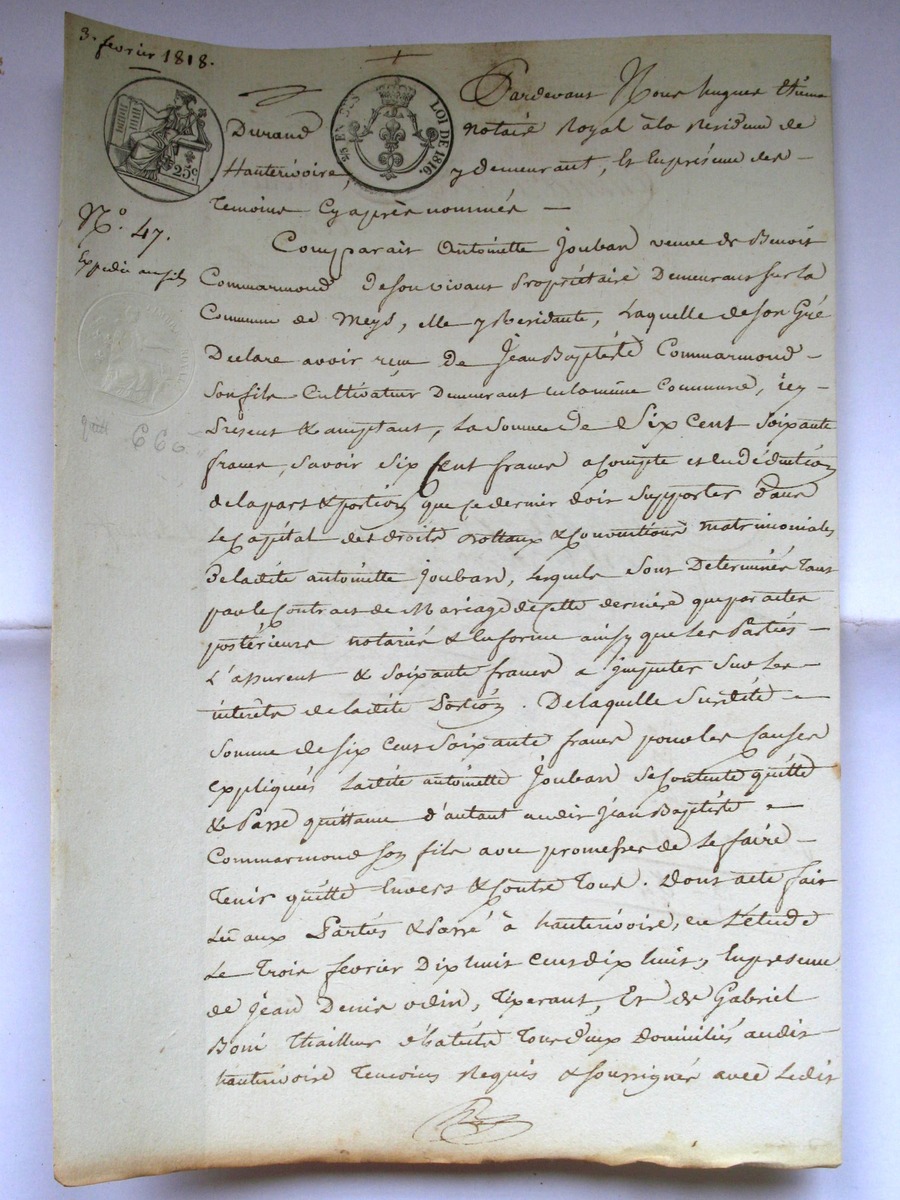 3. fevrier 1818.
25 EN SUS
LOI DE 1816.
25c
Pardevant Nous hugues Etiene
Durand notaire Royal à la Residence de
Hauterivoire, y demeurant, Et En présence des
Temoins Cy après nommés
N.º 47.
Expedié au fils
Comparait Antoinette Jouban veuve de Benoit
Commarmond de son vivant Propriétaire Demeurant sur la
Commune de Meys, elle y Residante, Laquelle de son Gré
Declare avoir reçu de Jean Baptiste Commarmond
Son fils Cultivateur Demeurant en la même Commune, icy
Present & acceptant, La Somme de Six Cent Soixante
francs, Savoir Six Cent francs acompte et en déduction
quitt 660
de la part & portion que ce dernier doit Supporter dans
Le Capital des droits dottaux & Conventions matrimoniales
De ladite antoinette Jouban, Lesquels Sont Determinés Tant
par le Contrat de Mariage de cette derniere que par actes
postérieurs notariés & en forme ainsy que Les Parties
L'assurent & Soixante francs a imputer Sur Les
interêts de ladite Portion. De laquelle Susdite
Somme de Six Cent Soixante francs pour les Causes
Expliqués Ladite antoinette Jouban Se Contente quitte
& Passe quittance d'autant audit Jean Baptiste
Commarmond Son fils avec promesses de Le faire
Tenir quitte Envers & Contre Tous. Dont acte fait
Lu aux Parties & Passé à hauterivoire, en L'etude
Le Trois fevrier Dix huit cent dix huit, En presence
de Jean Denis odin, Tixerant, Et de Gabriel
Boni thailleur d'habits Tous deux Domiciliés audit
hauterivoire Temoins Requis & Soussignés avec Ledit